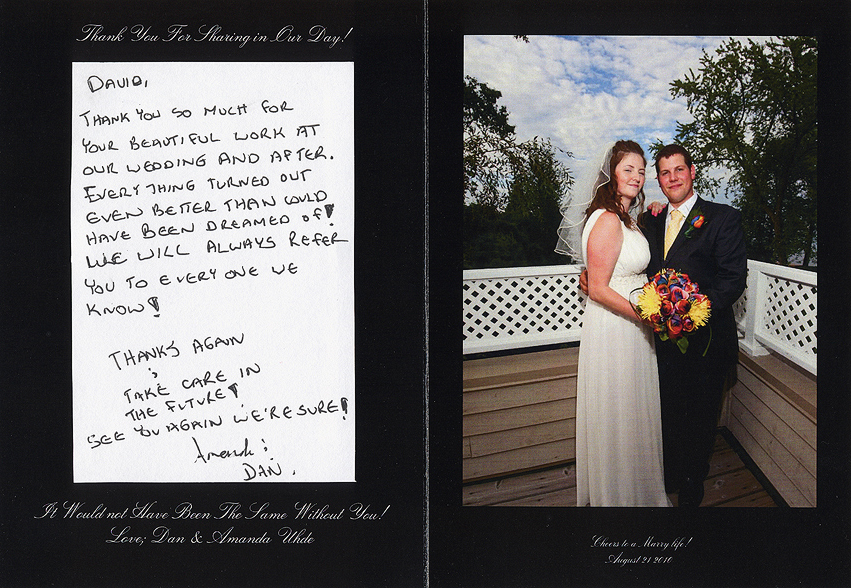 Thank You For Sharing in Our Day!
DAVID,
THANK YOU SO MUCH FOR
YOUR BEAUTIFUL WORK AT
OUR WEDDING AND AFTER.
EVERYTHING TURNED OUT
EVEN BETTER THAN COULD
HAVE BEEN DREAMED OF!
WE WILL ALWAYS REFER
YOU TO EVERYONE WE
KNOW!
THANKS AGAIN
&
TAKE CARE IN
THE FUTURE!
SEE YOU AGAIN WE'RE SURE!
Amanda &
DAN.
It Would not Have Been The Same Without You!
Love; Dan & Amanda Uhde
Cheers to a Marry life!
August 21 2010